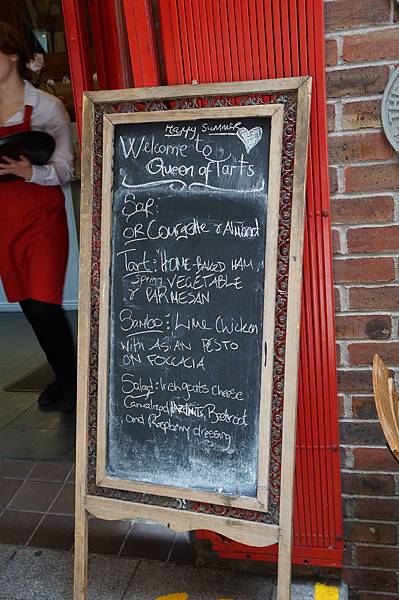 Happy Summer
Welcome to
Queen of Tarts
OR Courgette & Almond
Tart: HOME-BAKED HAM,
Spring VEGETABLE
& PARMESAN
Lime Chicken
WITH ASIAN PESTO
ON FOCCACIA
Salad: Irish goats cheese
Beetroot
and Raspberry dressing